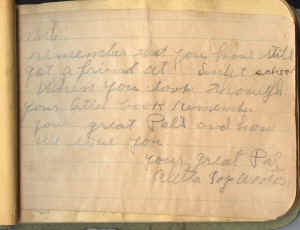 remember that you have still
got a friend at Sunset school
When you look through
your little book remember
your great Pals and how
we love you
your great Pal